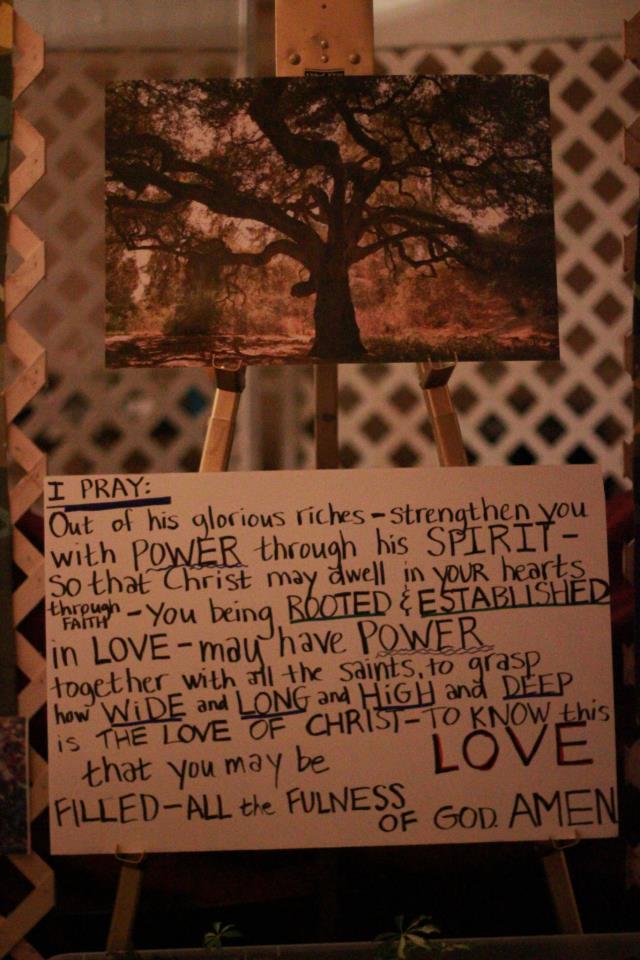 I PRAY:
Out of his glorious riches - strengthen you
with POWER through his SPIRIT -
so that Christ may dwell in your hearts
through FAITH - you being ROOTED & ESTABLISHED
in LOVE - may have POWER
together with all the saints, to grasp
how WiDE and LONG and HiGH and DEEP
is THE LOVE OF CHRIST - TO KNOW this
LOVE
that you may be
FILLED - ALL the FULNESS
OF GOD. AMEN